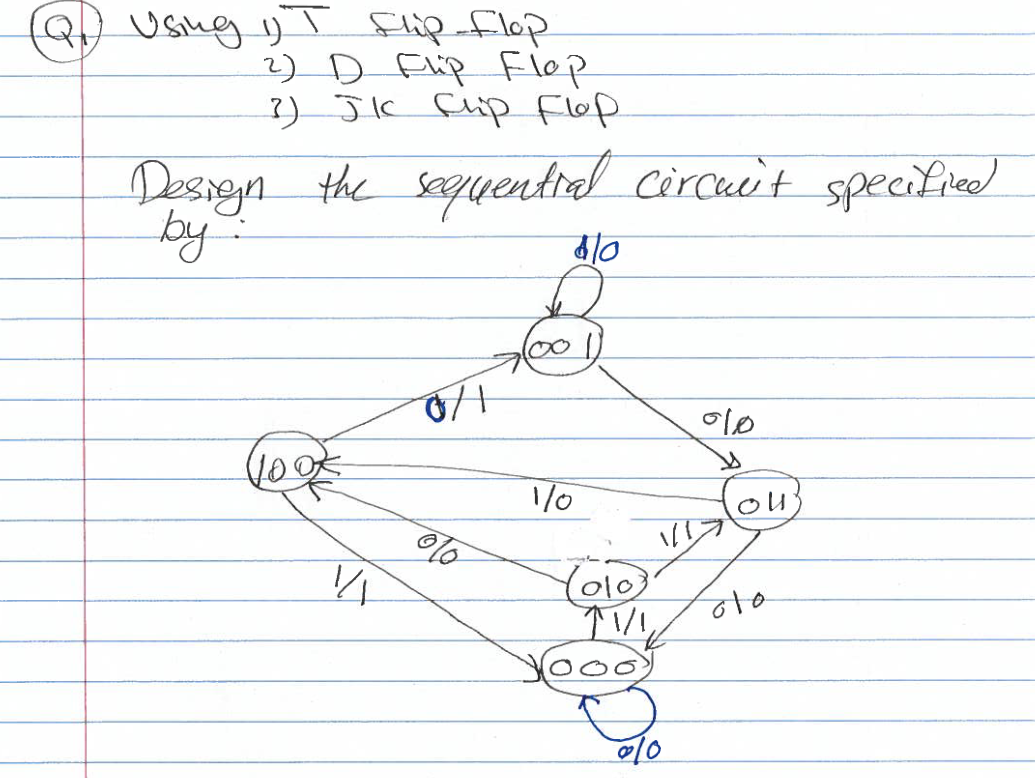 Q1 Using 1) T Flip-Flop
2) D Flip Flop
3) JK Flip Flop
Design the sequential circuit specified
by:
1/0
001
0/1
0/0
100
1/0
011
0/0
1/1
010
1/1
0/0
1/1
000
0/0